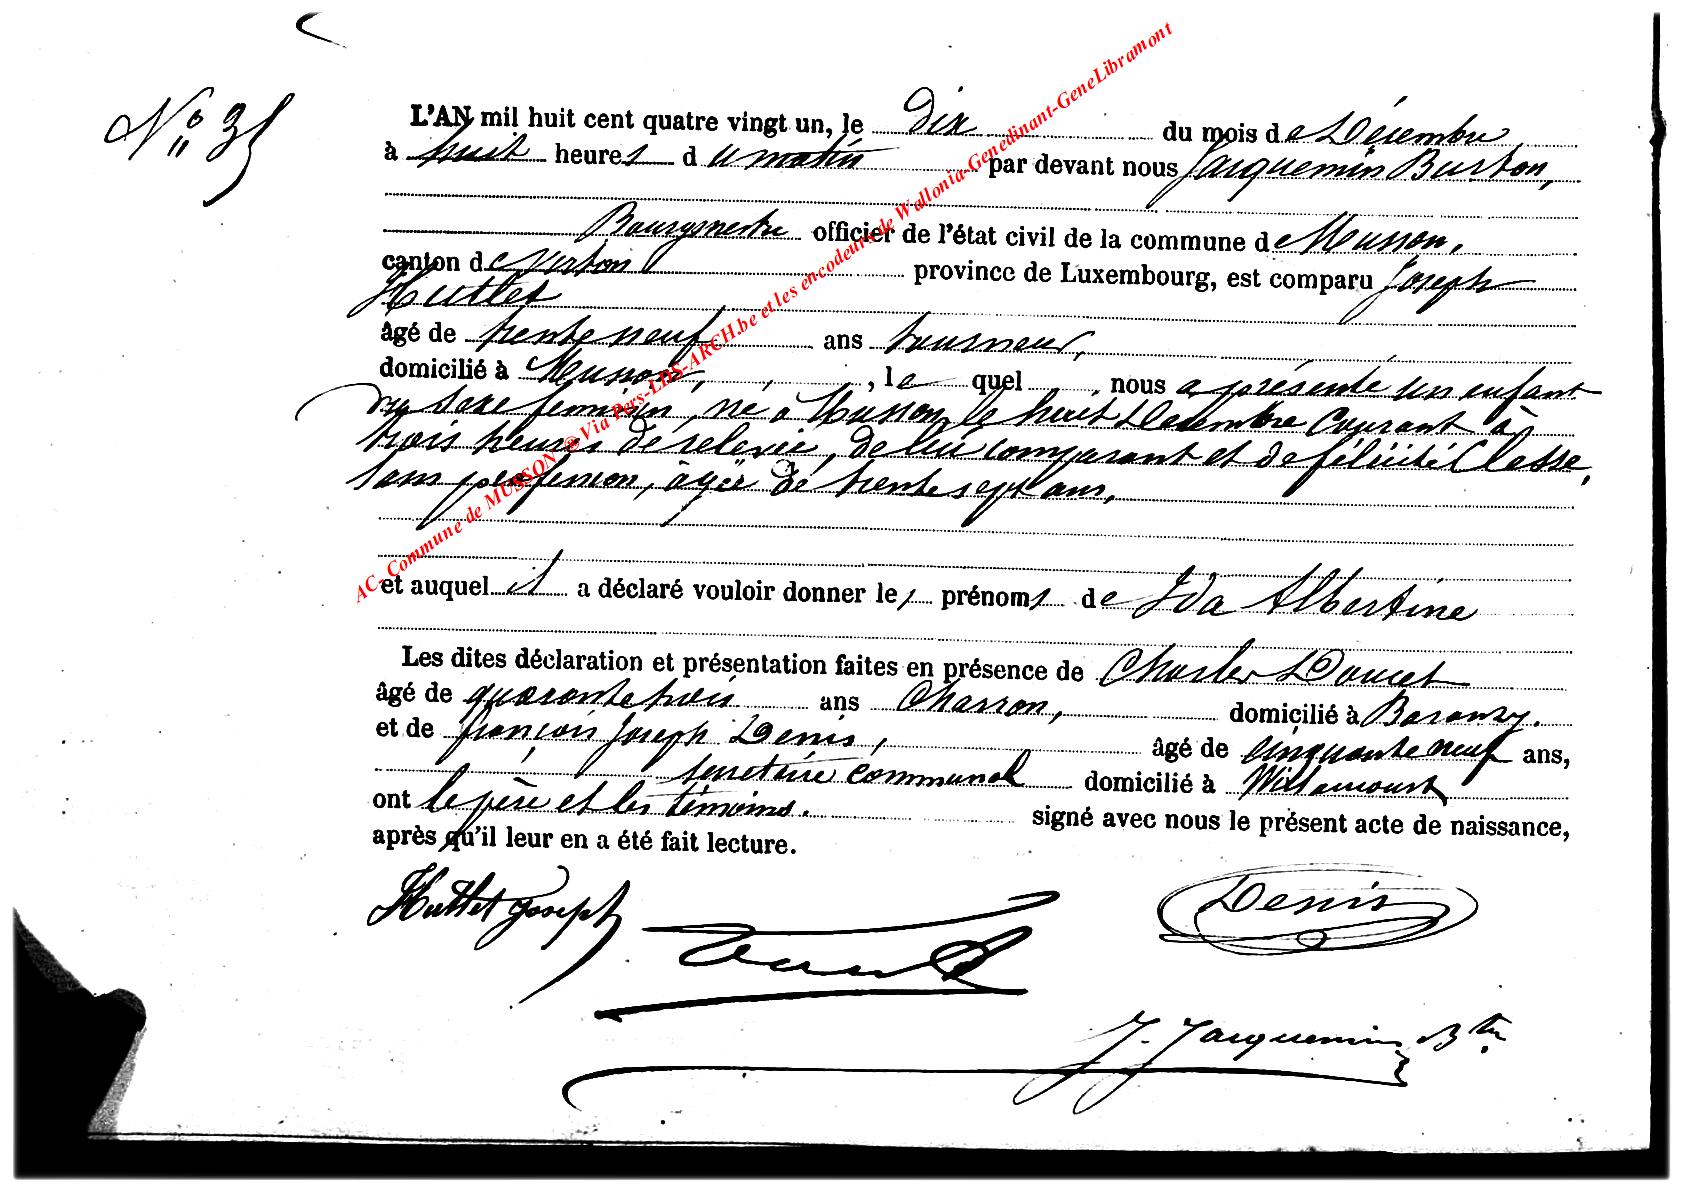 N° 35
L'AN mil huit cent quatre vingt un, le dix du mois de Décembre
à huit heures du matin par devant nous Jacquemin Burton,
Bourgmestre officier de l'état civil de la commune de Musson,
canton de Virton province de Luxembourg, est comparu Joseph
Hutlet
âgé de trente neuf ans tourneur,
domicilié à Musson, , le quel nous a présenté un enfant
du sexe féminin, né à Musson, le huit Décembre courant à
trois heures de relevée, de lui comparant et de félicité Clesse,
sans profession, âgée de trente sept ans,
et auquel il a déclaré vouloir donner les prénoms de Ida Albertine
Les dites déclaration et présentation faites en présence de Charles Doucet
âgé de quarante trois ans Charron, domicilié à Baranzy.
et de françois Joseph Denis, âgé de cinquante neuf ans,
secrétaire communal domicilié à Willancourt,
ont le père et les témoins. signé avec nous le présent acte de naissance,
après qu'il leur en a été fait lecture.
Hutlet Joseph
Denis
J. Jacquemin Btn
AC- Commune de MUSSON @ Via Pers-LDS-ARCH.be et les encodeurs de Wallonia-Genedinant-GeneLibramont